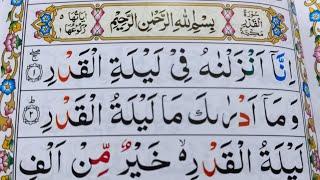 سُورَةُ الْقَدْرِ مَكِّيَّةٌ
بِسْمِ اللّٰهِ الرَّحْمٰنِ الرَّحِيْمِ
اٰيَاتُهَا ٥ رُكُوْعُهَا ١
اِنَّاۤ اَنْزَلْنٰهُ فِىْ لَيْلَةِ الْقَدْرِ ۝١
وَمَاۤ اَدْرٰٮكَ مَا لَيْلَةُ الْقَدْرِ ۝٢
لَيْلَةُ الْقَدْرِ ۙ خَيْرٌ مِّنْ اَلْفِ